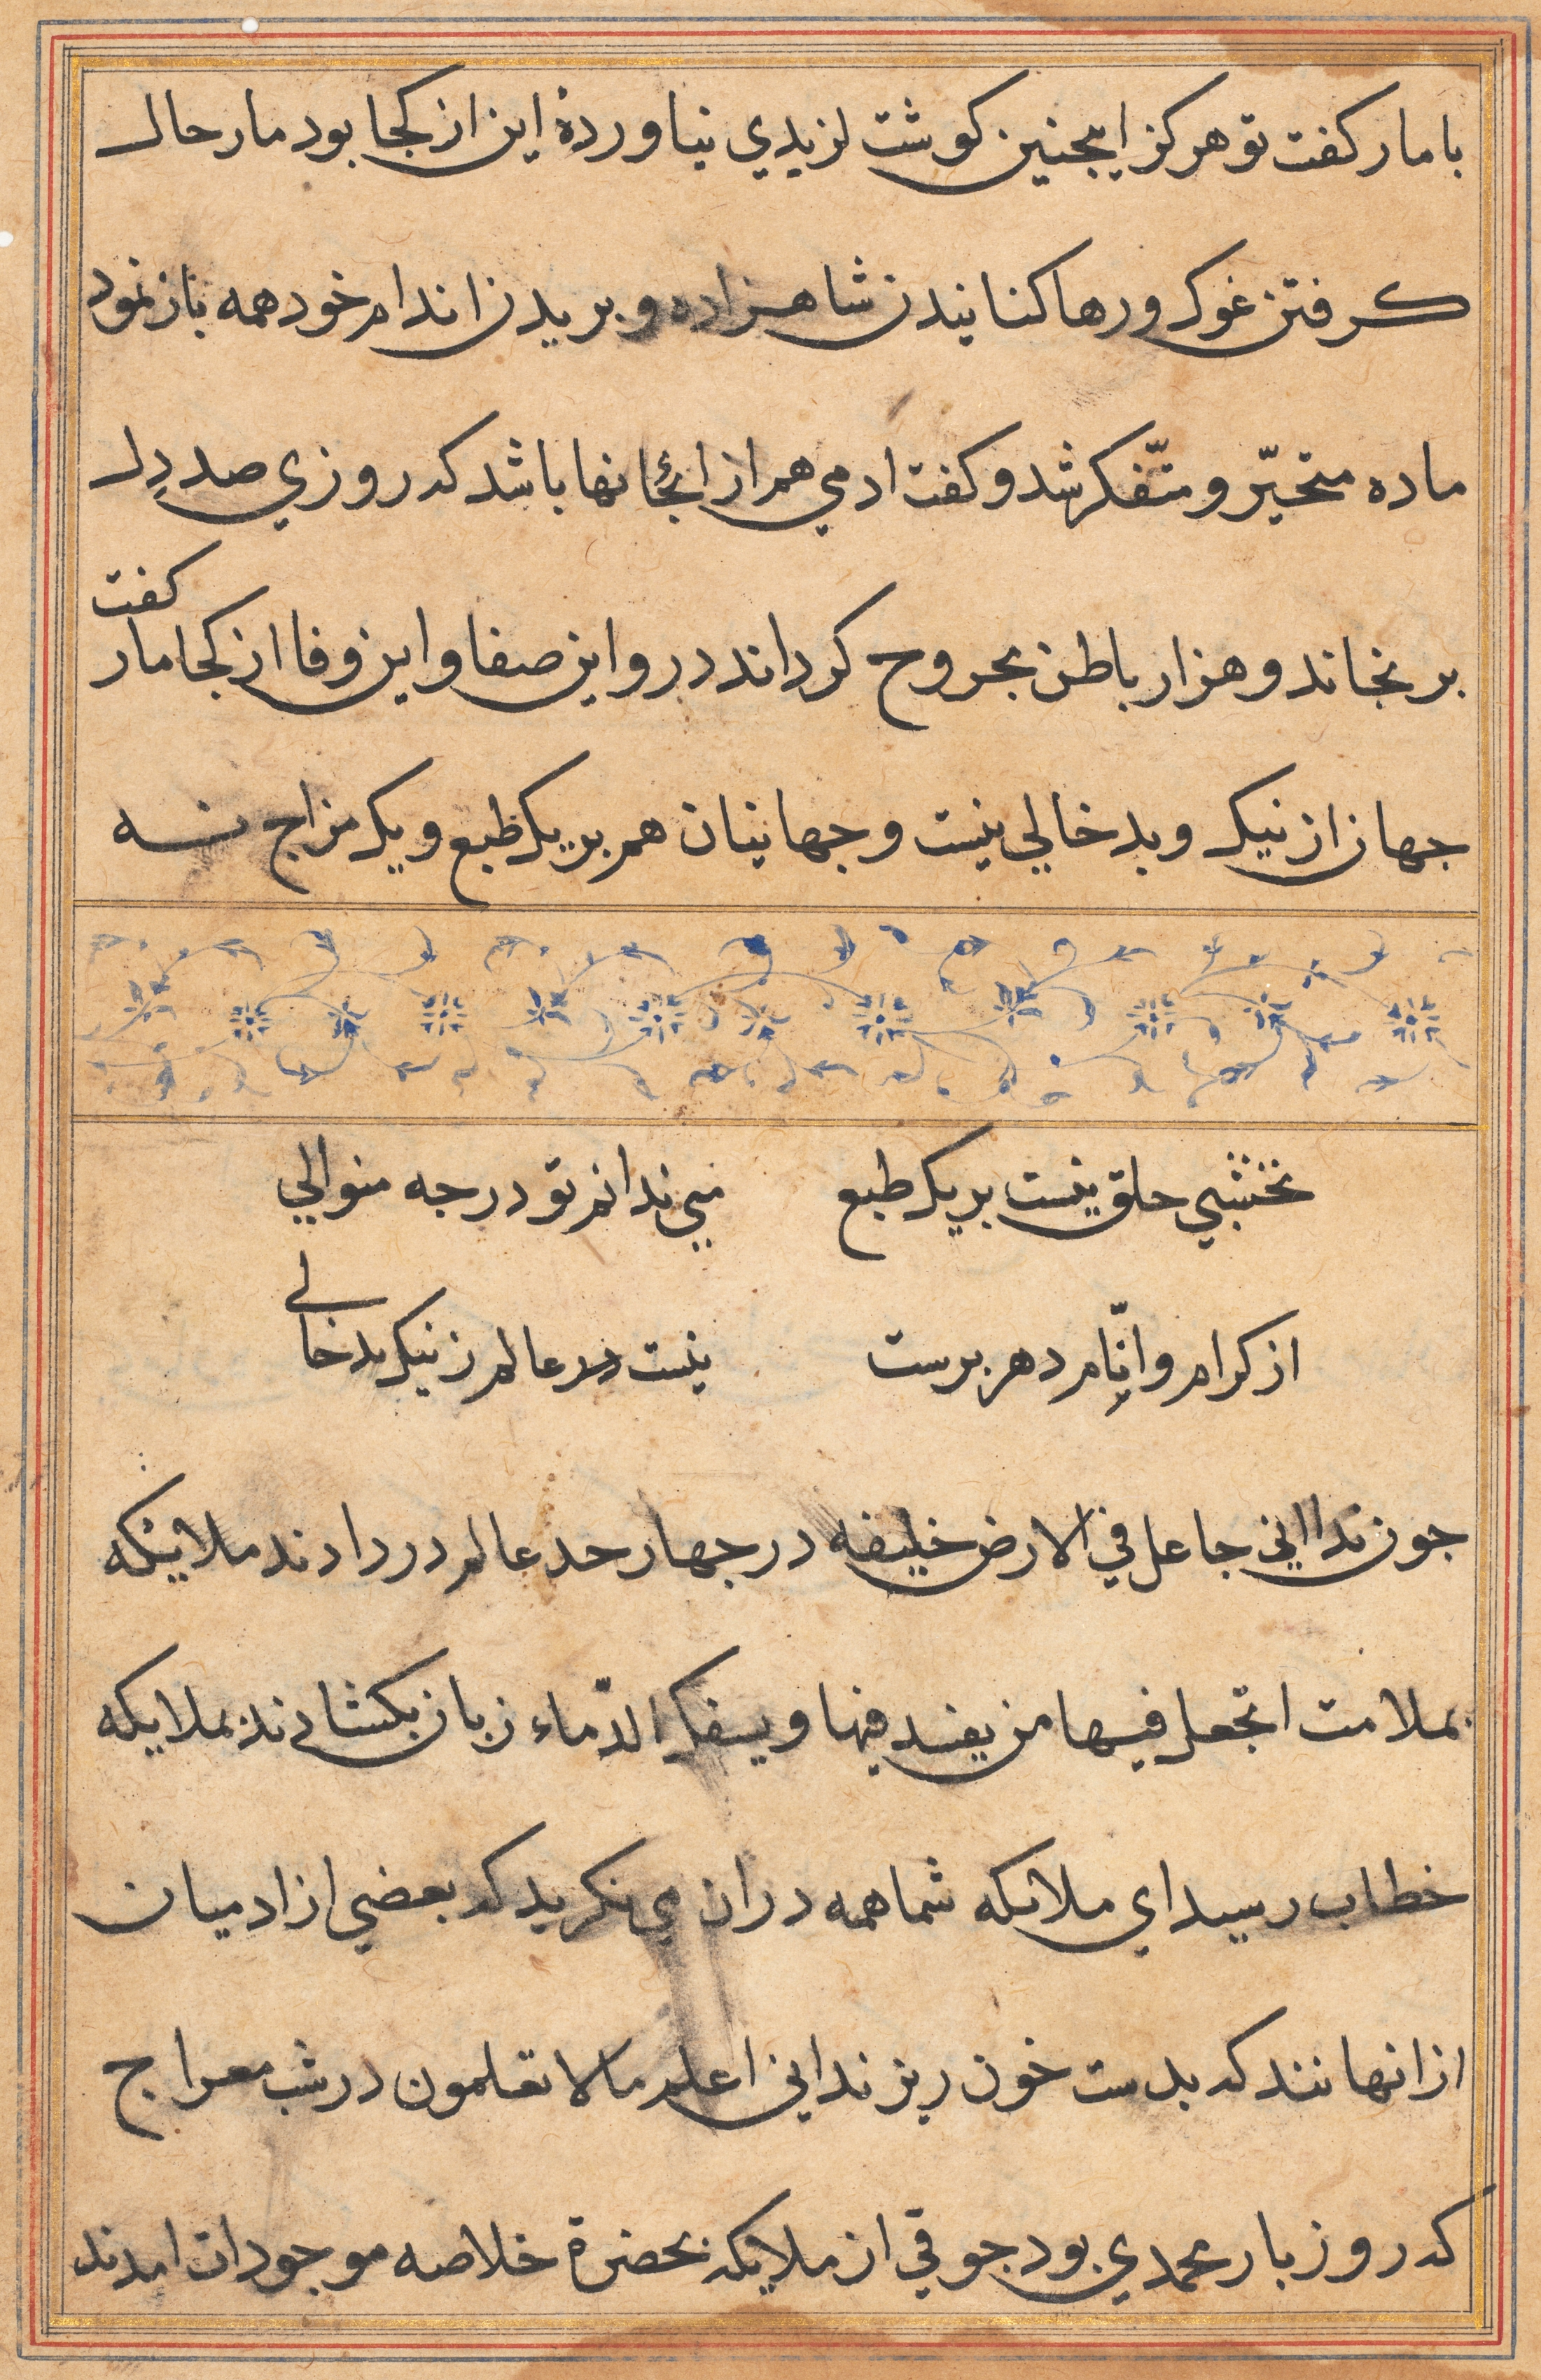 با مار كفت تو هركز اينجنين كوشت لزيدي نياوردهٔ اين از كجا بود مار حال
كرفتن غوك و رها كنانيدن شاهزاده و بريدن اندام خود همه باز نمود
ماده متحيّر و متّفكر شد و كفت ادمي هم از انجانها باشد كه روزي صد دل
برنجاند و هزار باطن مجروح كرداند در و اين صفا و اين وفا از كجا مار كفت
جهان از نيك و بد خالي نيست و جهانيان هم بر يك طبع و يك مزاج نه
نخشبي خلق نيست بر يك طبع مي ندانم تو درجه منوالي
از كرام و انّام دهر برست نيست در عالم ز نيك بد خالي
جون ندا اني جاعل في الارض خليفه در جهار حد عالم در دادند ملايكه
بملامت اتجعل فيها من يفسد فيها و يسفك الدّماء زبان بكشادند بملايكه
خطاب رسيد اي ملائكه شما همه دران مي نكريد كه بعضي از ادميان
از انهانند كه بدست خون ريزند اني اعلم مالا تعلمون در شب معراج
كه روز بار محمدي بود جوقي از ملايكه بحضرة خلاصه موجودات امدند